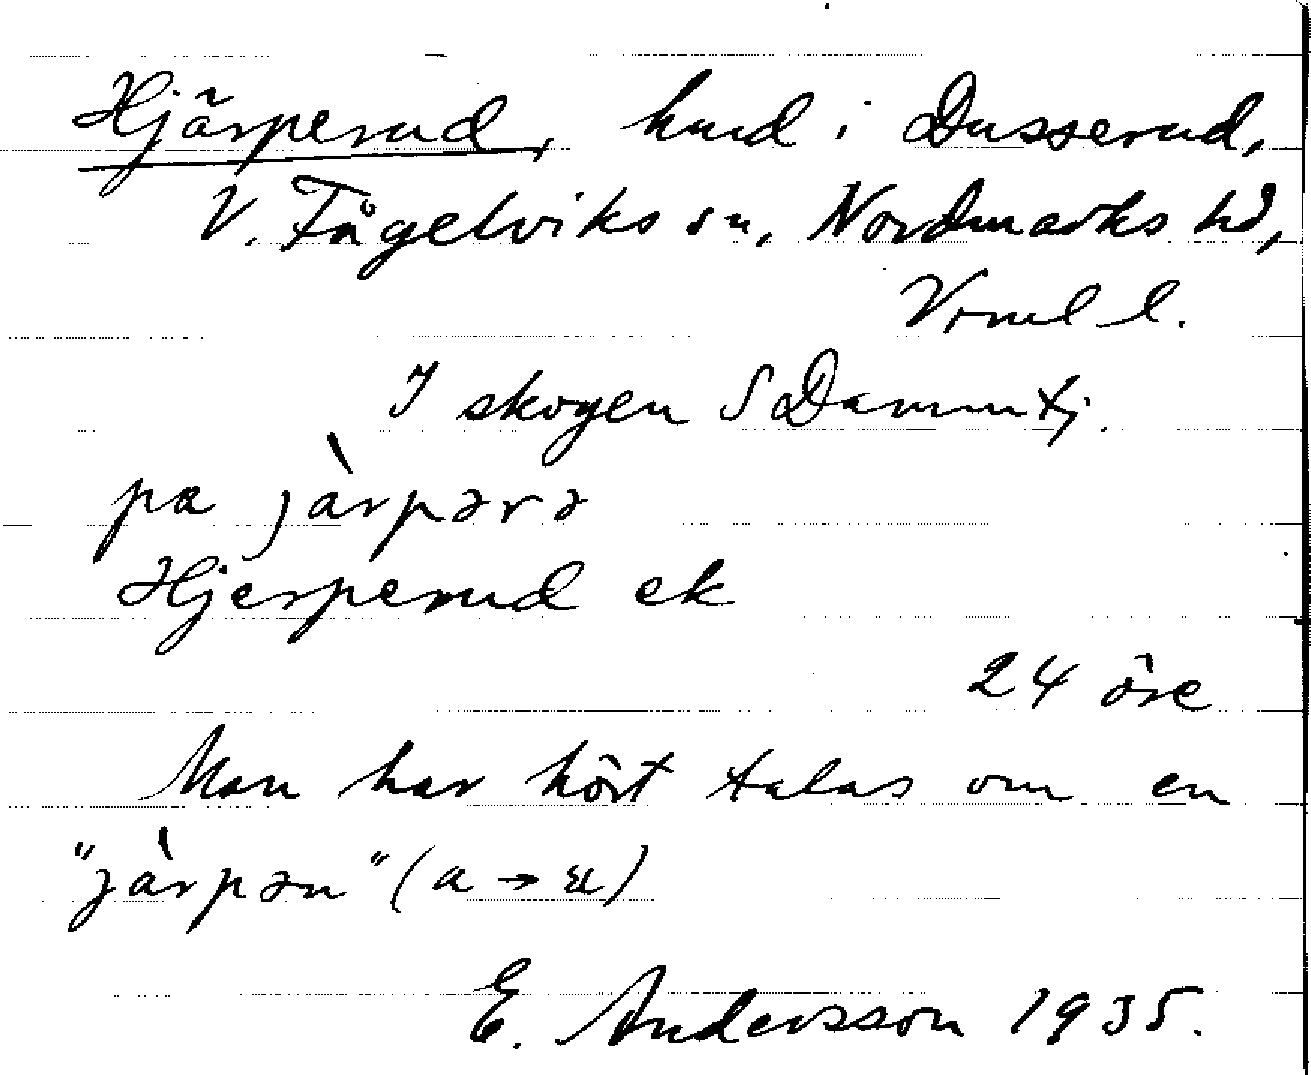 Hjärperud, hmd i Dusserud,
V. Fågelviks sn, Nordmarks hd,
Vrml l.
I skogen S Dammtj.
pa jàrpərə
Hjerperud ek
24 öre
Man har hört talas om en
"jàrpən" (a → æ)
E. Andersson 1935.